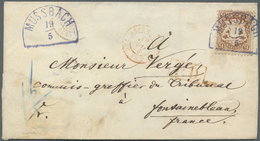 MUSSBACH
19
5
MUSSBACH
19
5
à
Monsieur Vergé
commis-greffier du Tribunal
à fontainebleau
france